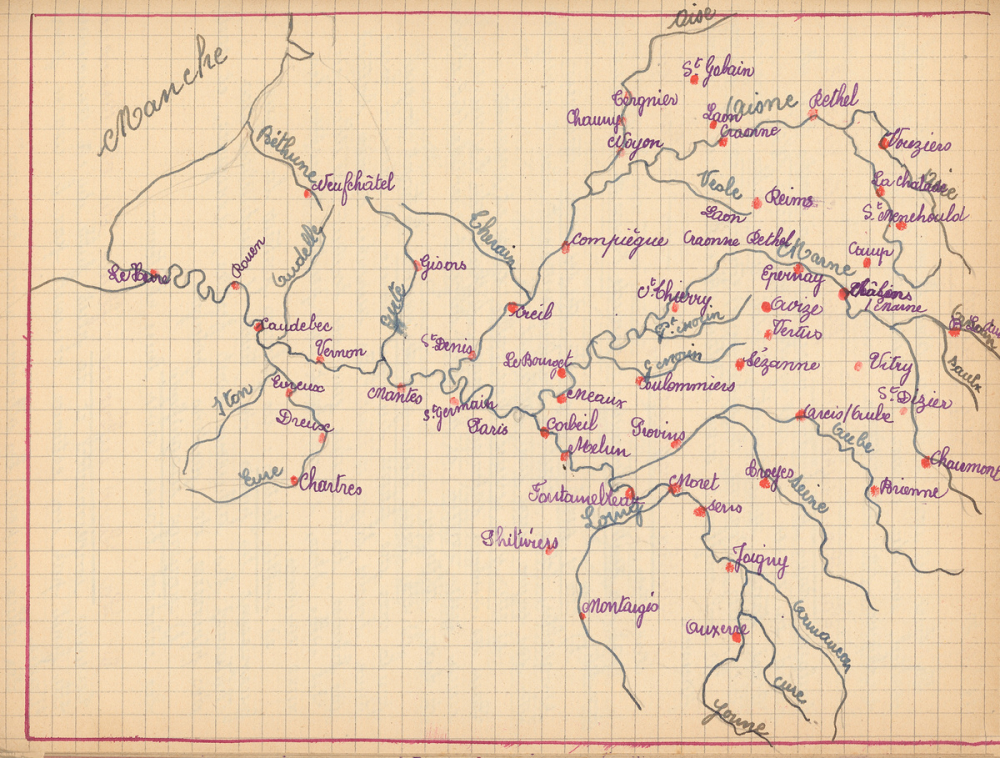 Oise
Manche
St Gobain
Tergnier
Aisne
Rethel
Chauny
Laon
Craonne
Noyon
Vouziers
Béthune
Neufchâtel
Vesle
Reims
La Chalade
Aire
Laon
St Menehould
Therain
Compiègne
Craonne Rethel
Marne
Camp
Rouen
Gisors
Epernay
Le Havre
Andelle
St Thierry
Châlons
Marne
Creil
Avize
Epte
Pt Morin
Caudebec
Vertus
St Denis
Vernon
Le Bourget
Gd Morin
Sézanne
Vitry
Saulx
Coulommiers
Evreux
Iton
Mantes
St Germain
Meaux
St Dizier
Dreux
Paris
Arcis/Aube
Corbeil
Provins
Aube
Melun
Chaumont
Eure
Chartres
Moret
Troyes
Seine
Brienne
Fontainebleau
Loing
Sens
Phitiviers
Joigny
Montargis
Armançon
Auxerre
Cure
Yonne